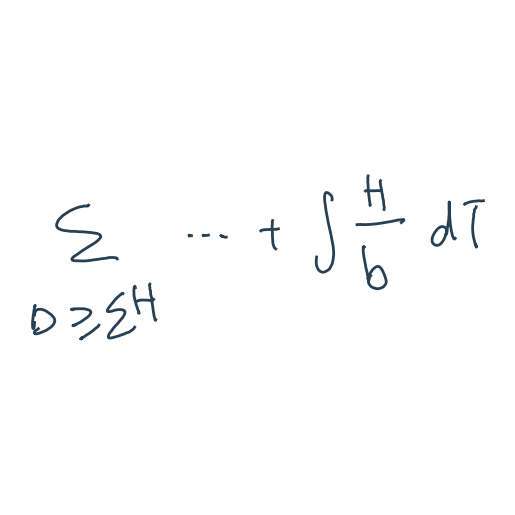 \sum_{D \geq \Sigma^H} \cdots + \int \frac{H}{b} dT